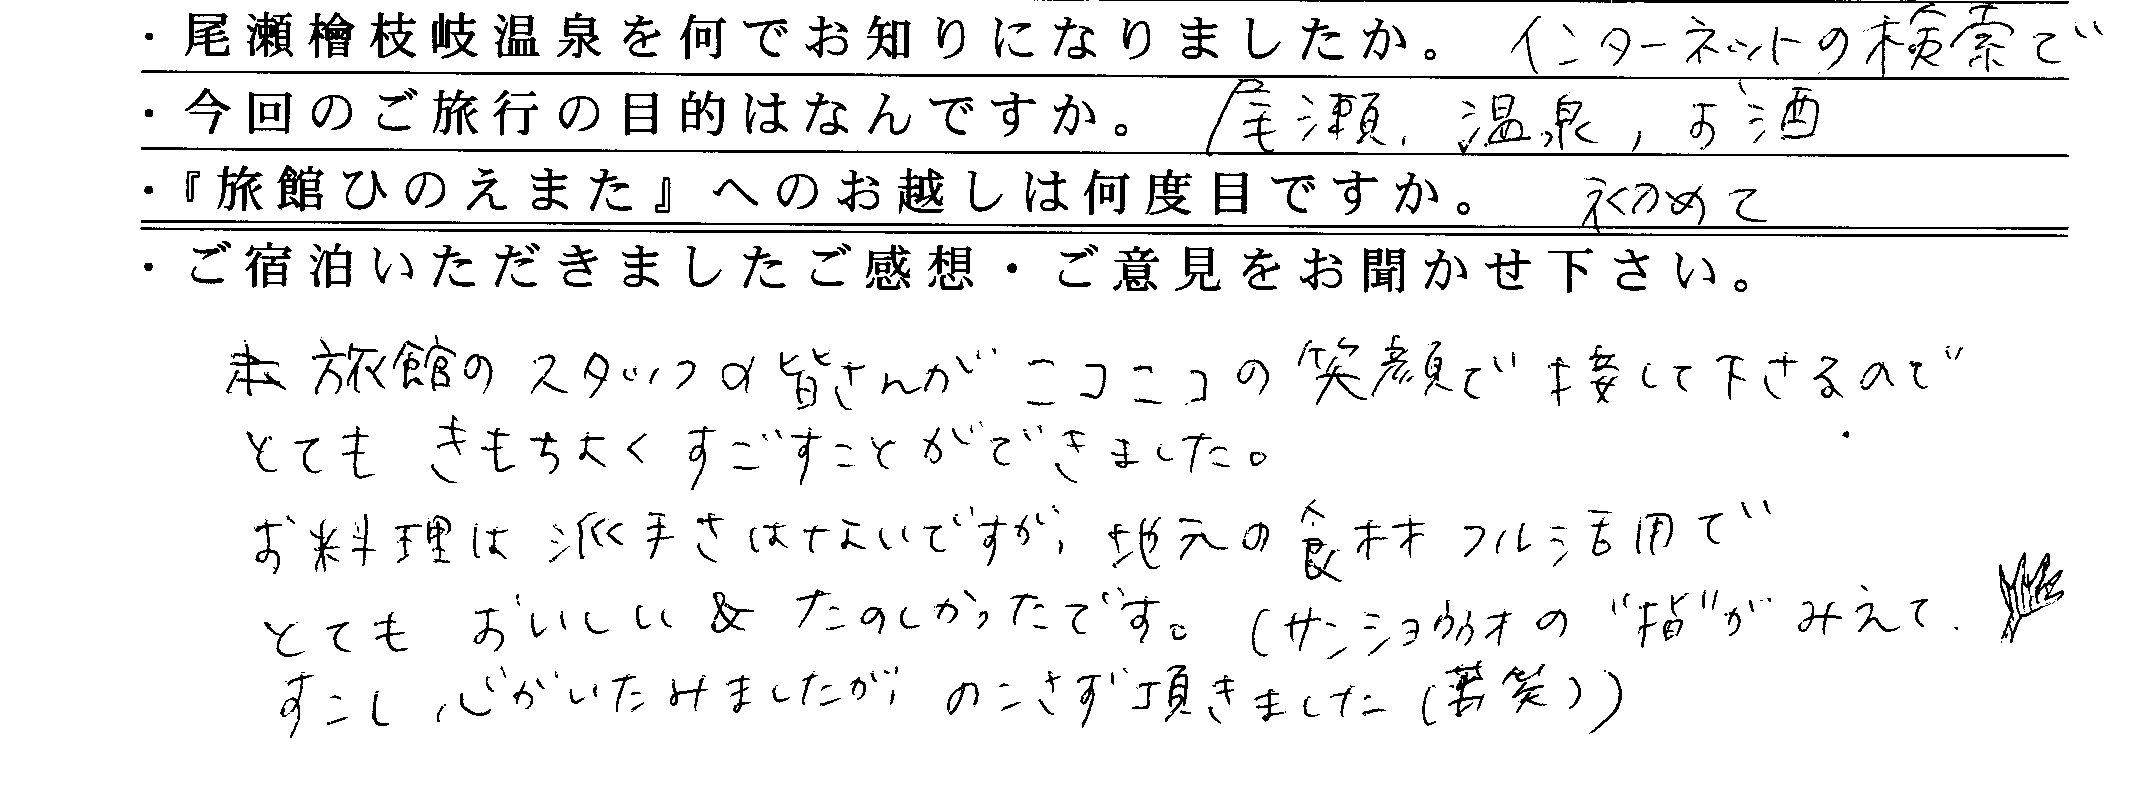 ・尾瀬檜枝岐温泉を何でお知りになりましたか。 インターネットの検索で
・今回のご旅行の目的はなんですか。 尾瀬、温泉、お酒
・『旅館ひのえまた』へのお越しは何度目ですか。 初めて
・ご宿泊いただきましたご感想・ご意見をお聞かせ下さい。
旅館のスタッフの皆さんがニコニコの笑顔で接して下さるので
とても きもち大く すごすことができました。
お料理は派手さはないですが、地元の食材フル活用で
とても おいしい & たのしかったです。(サンショウウオの "指"がみえて、
すこし心がいたみましたが、のこさず頂きました(苦笑))